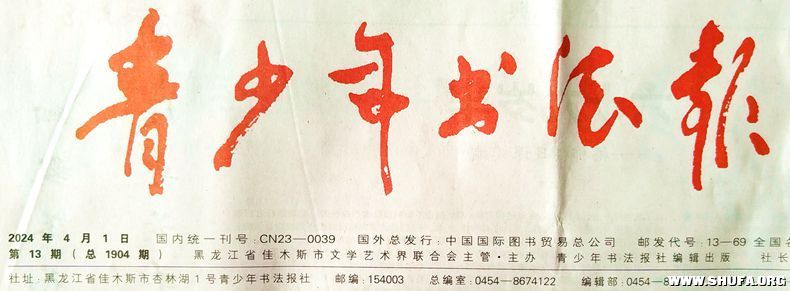 青少年书法报
2024 年 4 月 1 日 国内统一刊号:CN23—0039 国外总发行:中国国际图书贸易总公司 邮发代号:13—69 全国各
第 13 期 (总 1904 期) 黑龙江省佳木斯市文学艺术界联合会主管·主办 青少年书法报社编辑出版 社长
社址:黑龙江省佳木斯市杏林湖1号青少年书法报社 邮编:154003 总编室:0454—8674122 编辑部:0454—8
WWW.SHUFA.ORG